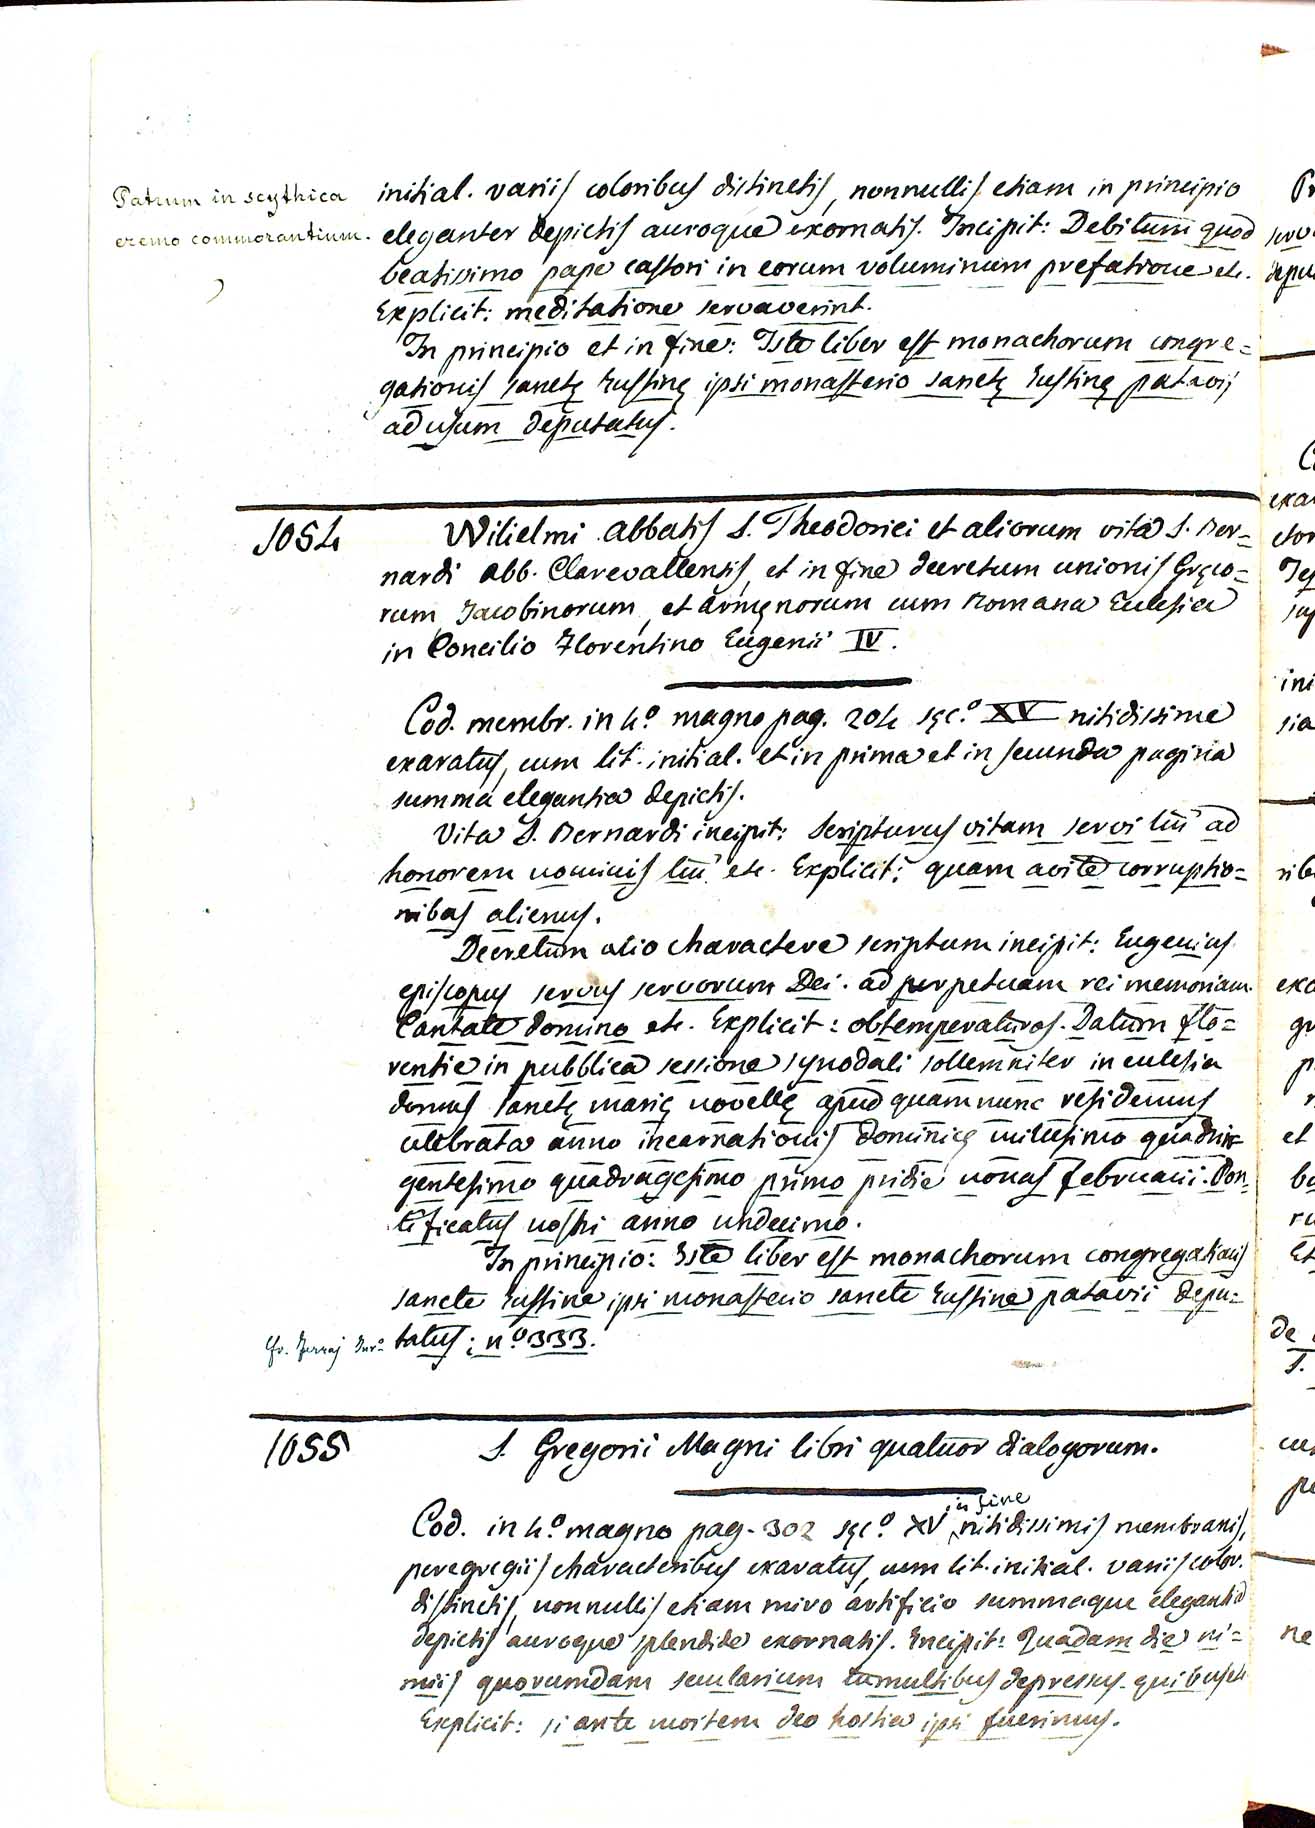 Patrum in scythica
eremo commorantium.
initial. variis coloribus distinctis, nonnullis etiam in principio
eleganter depictis auroque exornatis. Incipit: Debitum quod
beatissimo papę castori in eorum voluminum prefatione etc.
Explicit: meditatione servaverint.
In principio et in fine: Iste liber est monachorum congre=
gationis sanctę Iustinę ipsi monasterio sanctę Iustinę patavii
ad usum deputatus.
1054
Wilielmi abbatis S. Theodorici et aliorum vita S. Ber=
nardi abb. Clarevallensis, et in fine decretum unionis Gręco=
rum Jacobinorum, et armęnorum cum Romana Eulesia
in Concilio Florentino Eugenii IV.
Cod. membr. in 4.º magno pag. 204 sęc.º XV nitidissime
exaratus, cum lit. initial. et in prima et in secunda pagina
summa elegantia depictis.
Vita S. Bernardi incipit: Scripturus vitam servi tui ad
honorem nominis tui etc. Explicit: quam a vite corruptio=
nibus alienus.
Decretum alio charactere scriptum incipit: Eugenius
episcopus servus servorum Dei. ad perpetuam rei memoriam.
Cantate domino etc. Explicit: obtemperaturos. Datum flo=
rentie in pubblica sessione synodali sollemniter in eulesia
domus sanctę marię novellę apud quam nunc residemus
celebrata anno incarnationis dominicę millesimo quadrin=
gentesimo quadragesimo primo pridie nonas februarii. Pon=
tificatus nostri anno undecimo.
In principio: Iste liber est monachorum congregationis
sancte Iustine ipsi monasterio sancte Iustine patavii depu=
tatus; n.º 333.
1055
S. Gregorii Magni libri quatuor dialogorum.
in fine
Cod. in 4.º magno pag. 302 sęc.º XV nitidissimis membranis,
peregregiis characteribus exaratus, cum lit. initial. variis color.
distinctis, nonnullis etiam miro artificio summaque elegantia
depictis auroque splendide exornatis. Incipit: Quadam die ni=
miis quorumdam secularium tumultibus depressus quibus etc
Explicit: si ante mortem deo hostia ipsi fuerimus.